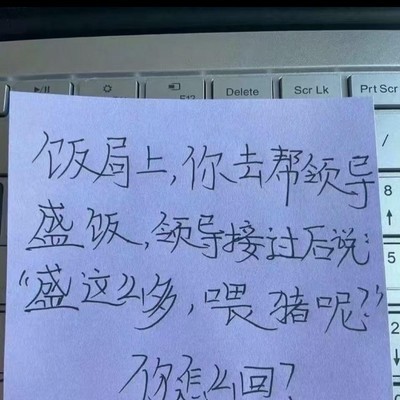 Delete
Scr Lk
Prt Scr
饭局上,你去帮领导
盛饭,领导接过后说:
"盛这么多,喂猪呢?"
你怎么回?
/
8
5
2